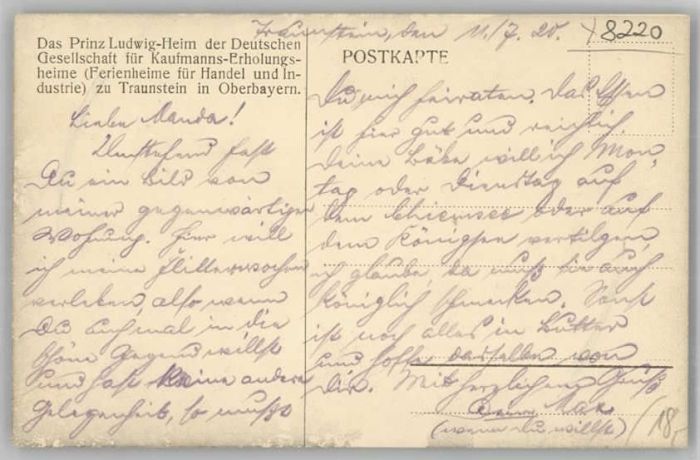 Traunstein, den 11./7. 20.
8220
Das Prinz Ludwig-Heim der Deutschen
Gesellschaft für Kaufmanns-Erholungs-
heime (Ferienheime für Handel und In-
dustrie) zu Traunstein in Oberbayern.
POSTKARTE
Liebe Manda!
Umstehend hast
Du ein Bild von
meiner gegenwärtigen
Wohnung. Hier will
ich meine Flitterwochen
verleben, also wenn
Du auch mal in die
schöne Gegend willst
und hast keine andere
Gelegenheit, so mußt
Du mich heiraten. Das Essen
ist hier gut und reichlich.
Deine will ich Mon-
tag oder Dienstag auf
dem Chiemsee oder auf
dem Königssee vertilgen,
ich glaube, da muß sie auch
königlich schmecken. Sonst
ist noch alles in Butter
und hoffe dasselbe von
Dir. Mit herzlichem Gruß
Max
(wenn Du willst)
18,-